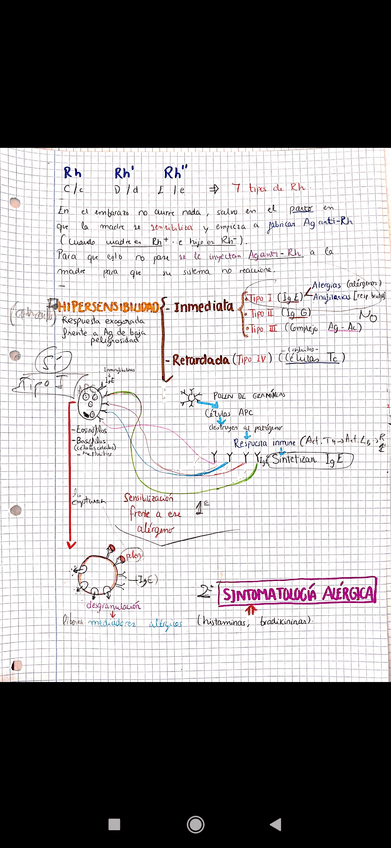 Rh Rh' Rh''
C/c D/d E/e ⇒ 7 tipos de Rh
En el embarazo no ocurre nada, salvo en el parto en
que la madre se sensibiliza y empieza a fabricar Ag anti-Rh
(Cuando madre es Rh+ e hijo es Rh-).
Para que esto no pase se le inyectan Ag anti-Rh a la
madre para que su sistema no reaccione.
HIPERSENSIBILIDAD
Respuesta exagerada
frente a Ag de baja
peligrosidad
- Inmediata
• Tipo I (IgE)
Alergias (alérgenos)
Anafilaxias
• Tipo II (IgG)
NO
• Tipo III (Complejo Ag-Ac)
- Retardada (Tipo IV) (células Tc)
SÍ
Tipo I
IgE
- Eosinófilos
- Basófilos
POLEN DE GRAMÍNEAS
Células APC
destruyen al patógeno
Respuesta inmune
IgE Sintetizar IgE
capturan
Sensibilización
frente a ese
alérgeno
1º
polen
(IgE)
desgranulación
2º SINTOMATOLOGÍA ALÉRGICA
mediadores alérgicos (histaminas, bradikininas)